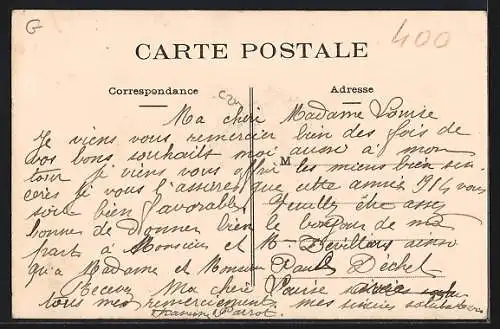 G
400
CARTE POSTALE
Correspondance Adresse
Ma cheré Madame Louise
Je viens vous remercier bien des fois de
vos bons souhaits moi aussi à mon
tour je viens vous offrir M les miens bien sin-
ceres je vous l'asseres que cette année 1914 vous
soire bien favorables Veuilly être assez
bonne de donner bien le bonjour de ma
part à Monsieur et M Devilliers ainsi
qu'a Madame et Monsieur Paul Déchet
Recevez Ma cheré Louise
tous mes remerciements mes sincères salutations
Parrot.